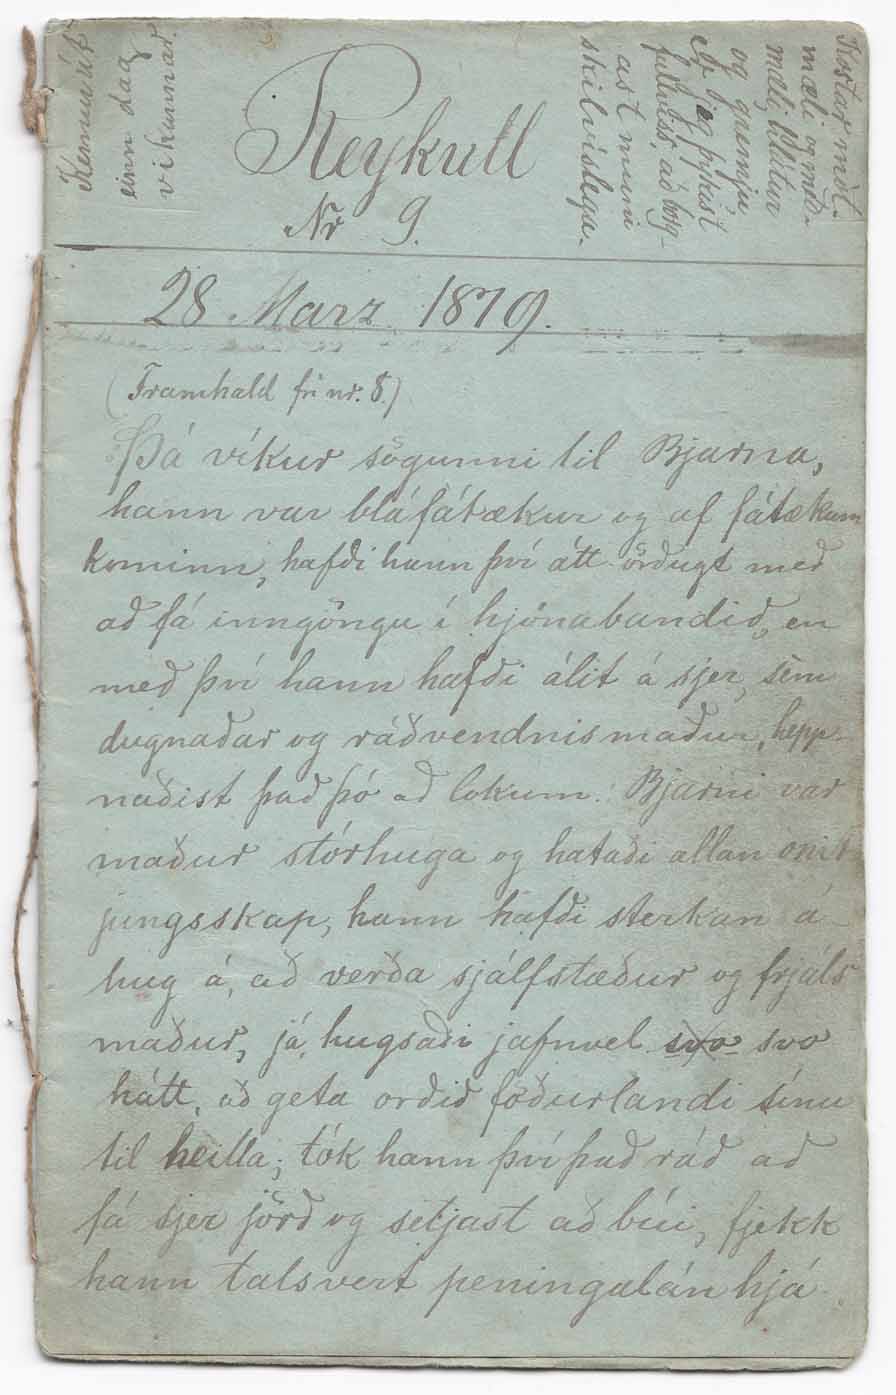 Kemur út
einn dag
vikunnar.
Reykull
Nr 9.
Kostar mót-
mæli og mið-
mæli, hlátur
og gremju
og jeg þykist
fullviss, að borg-
ast muni
skilvíslega.
28 Marz 1879.
(Framhald frá nr. 8.)
Þá víkur sögunni til Bjarna,
hann var bláfátækur og af fátækum
kominn, hafði hann því átt örðugt með
að fá inngöngu í hjónabandið, en
með því hann hafði álit á sjer, sem
dugnaðar og ráðvendnismaður, hepp-
naðist það þó að lokum. Bjarni var
maður stórhuga og hataði allan ónit
jungsskap, hann hafði sterkan á-
hug á, að verða sjálfstæður og frjáls
maður, já, hugsaði jafnvel svo svo
hátt, að geta orðið föðurlandi sínu
til heilla; tók hann því það ráð að
fá sjer jörð og setjast að búi, fjekk
hann talsvert peningalán hjá